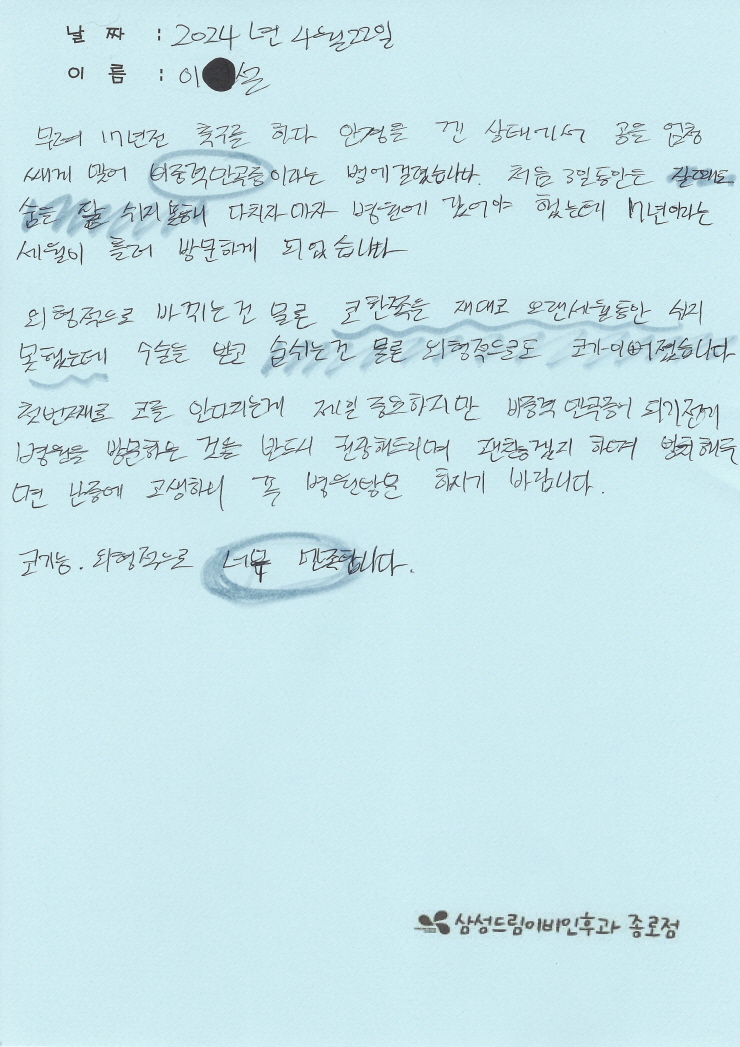 날 짜 : 2024년 4월22일
이 름 : 이 설
무려 17년전 축구를 하다 안경을 낀 상태에서 공을 엄청
쌔게 맞어 비중격만곡증이라는 병에걸렸습니다. 처음 3일동안은 잘때도
숨을 잘 쉬지못해 다치자마자 병원에 갔어야 했는데 17년이라는
세월이 흘러 방문하게 되었습니다
외형적으로 바뀌는건 물론 코한쪽을 재대로 오랜세월동안 쉬지
못했는데 수술을 받고 숨쉬는건 물론 외형적으로도 코가이뻐졌습니다
첫번째로 코를 안다치는게 제일 중요하지만 비중격 만곡증이 되기전에
병원을 방문하는 것을 반드시 권장해드리며 괜찮겠지 하며 방치해두
면 나중에 고생하니 꼭 병원방문 하시기 바랍니다.
코기능. 외형적으로 너무 만족합니다.
삼성드림이비인후과 종로점